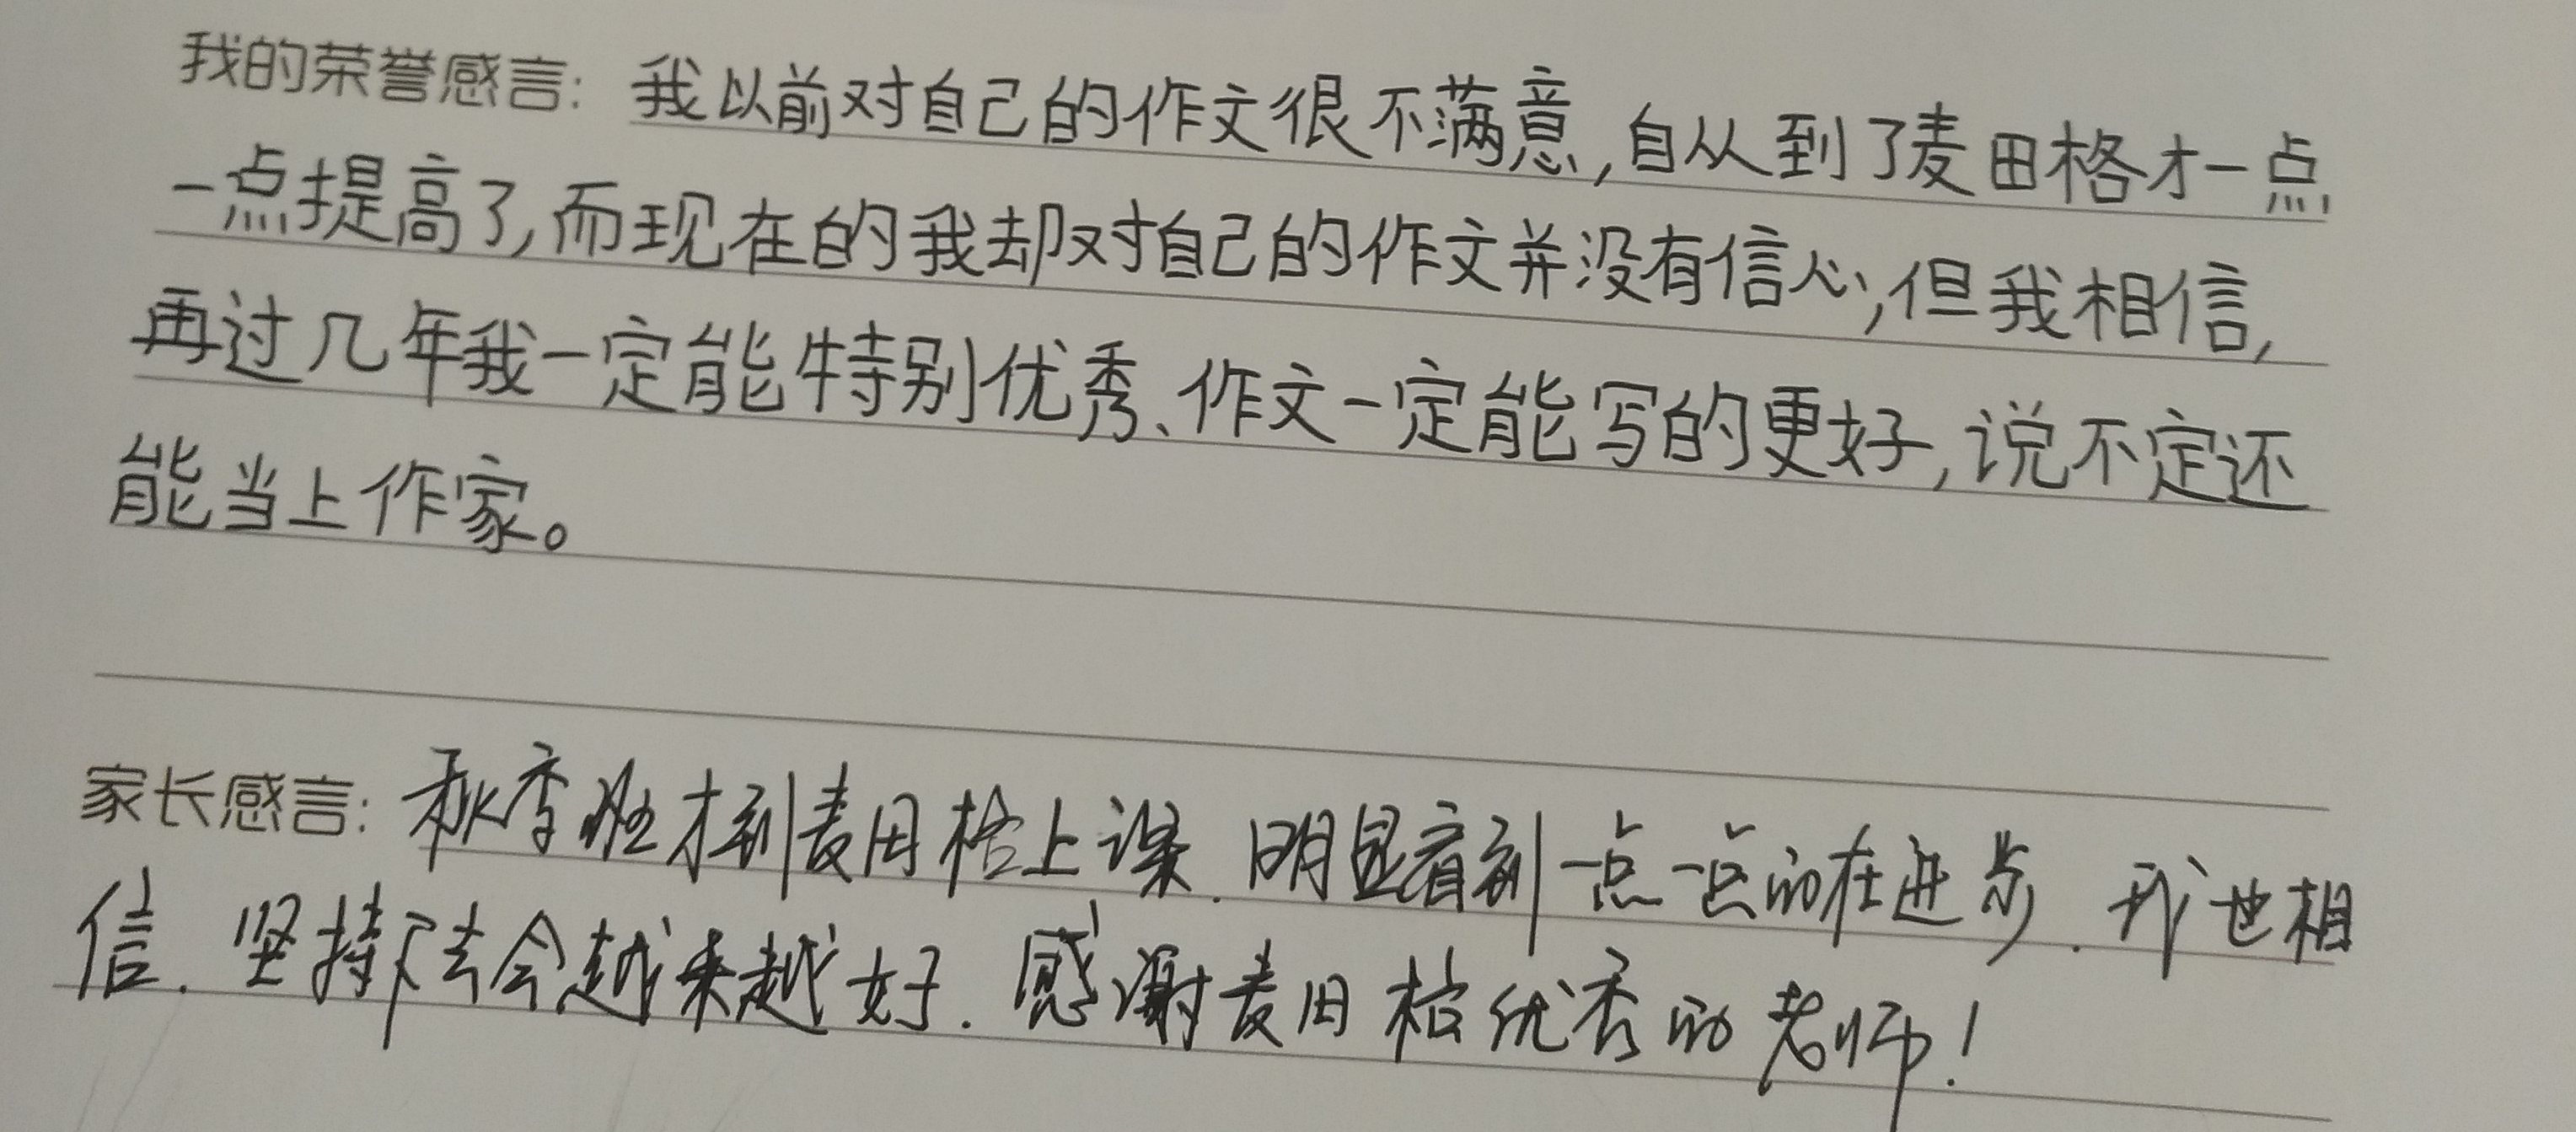 我的荣誉感言：我以前对自己的作文很不满意，自从到了麦田格才一点
一点提高了，而现在的我却对自己的作文并没有信心，但我相信，
再过几年我一定能特别优秀、作文一定能写的更好，说不定还
能当上作家。
家长感言：秋季班才到麦田格上课．明显看到一点一点的在进步．我也相
信．坚持下去会越来越好．感谢麦田格优秀的老师！